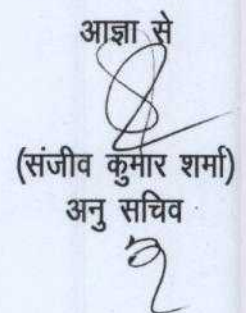 आज्ञा से
(संजीव कुमार शर्मा)
अनु सचिव